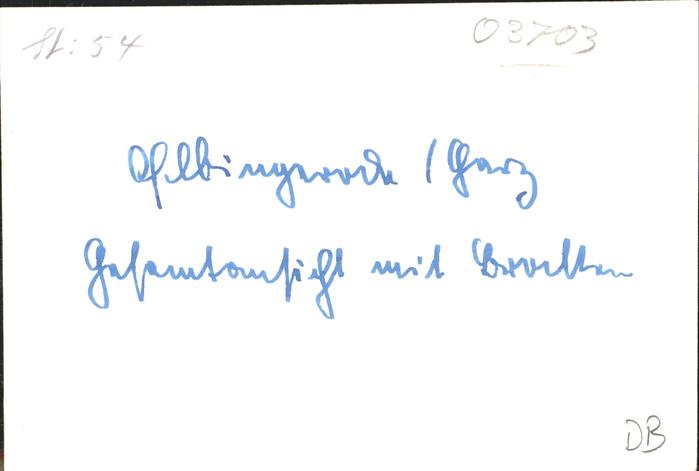 St: 54
03703
Elbingerode / Harz
Gesamtansicht mit Brocken
DB